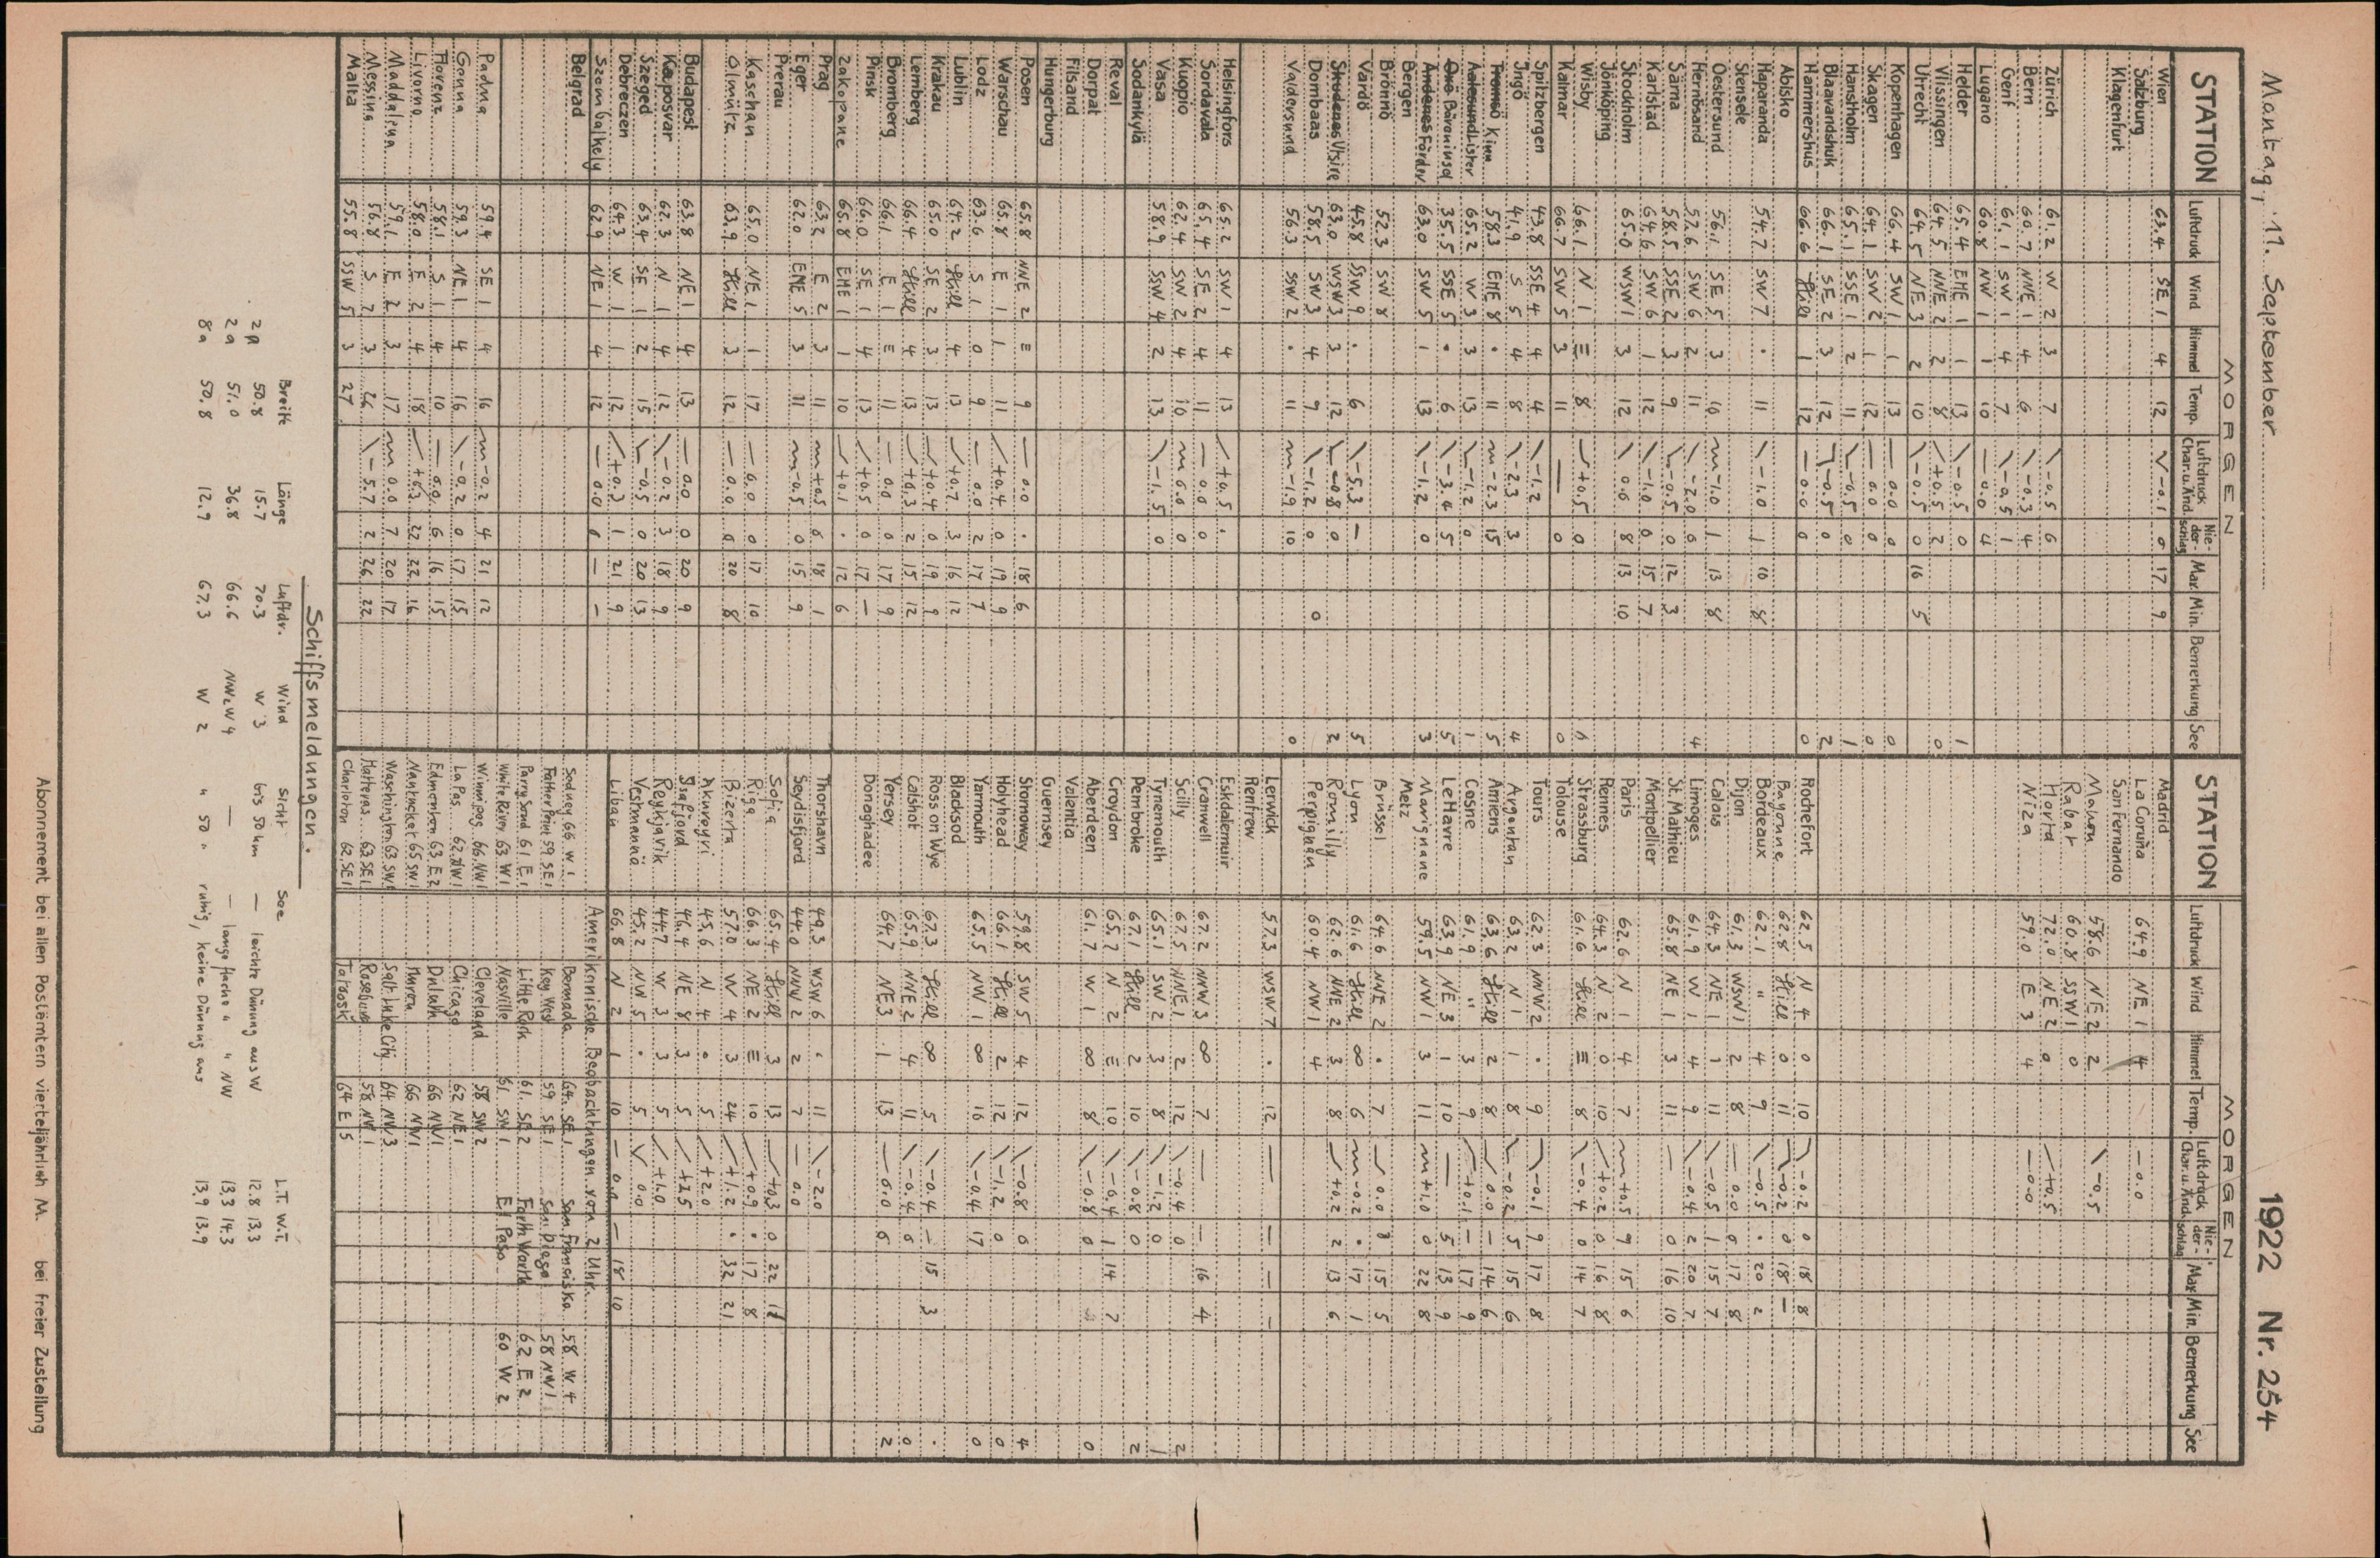 Montag, 11. September 1922 Nr. 254
MORGEN
STATION Luftdruck Wind Himmel Temp. Luftdruck Char. u. Änd. Nie-der-schlag Max. Min. Bemerkung See
Wien 63.4 SE 1 4 12 -0.1 0 17 9
Salzburg
Klagenfurt
Zürich 61.2 W 2 3 7 -0.5 6
Bern 60.7 NNE 1 4 6 -0.3 4
Genf 61.1 SW 1 4 7 -0.5 1
Lugano 60.8 NW 1 1 10 -0.0 4
Helder 65.4 ENE 1 1 13 -0.5 0 1
Vlissingen 64.5 NNE 2 2 8 +0.5 2 0
Utrecht 64.5 NE 3 2 10 -0.5 0 16 5
Kopenhagen 66.4 SW 1 1 13 0.0 0 0
Skagen 64.1 SW 2 1 12 0.0 0 0
Hanstholm 65.1 SSE 1 2 11 -0.5 0 1
Blaavandshuk 66.1 SE 2 3 12 -0.5 0 2
Hammershus 66.6 still 1 12 0.0 0 0
Abisko
Haparanda 54.7 SW 7 . 11 -1.0 1 10 8
Stensele
Oestersund 56.1 SE 5 3 10 -1.0 1 13 8
Hernösand 57.6 SW 6 2 11 -2.0 6 4
Särna 58.5 SSE 2 3 9 -0.5 0 12 3
Karlstad 64.6 SW 6 1 12 -1.0 0 15 7
Stockholm 65.0 WSW 1 3 12 0.6 8 13 10
Jönköping
Wisby 66.1 N 1 ≡ 8 +0.5 0
Kalmar 66.7 SW 5 3 11 — 0 0
Spitzbergen 43.8 SSE 4 4 4 -1.2
Ingö 41.9 S 5 4 8 -2.3 3 4
Kinn 58.3 ENE 8 . 11 -2.3 15 5
Lister 65.2 W 3 3 13 -1.2 0 1
Bäreninsel 35.5 SSE 5 . 6 -3.4 5 5
Färder 63.0 SW 5 1 13 -1.2 0 3
Bergen
Brönnö 52.3 SW 8
Vardö 45.8 SSW 9 . 6 -5.3 — 5
Utsire 63.0 WSW 3 3 12 -0.8 0 2
Dombaas 58.5 SW 3 4 9 -1.2 0 0
Valdersund 56.3 SSW 2 . 11 -1.9 10 0
Helsingfors 65.2 SW 1 4 13 +0.5 .
Sordavala 65.4 SE 2 4 11 0.0 0
Kuopio 62.4 SW 2 4 10 0.0 0
Vasa 58.9 SSW 4 2 13 -1.5 0
Sodankylä
Reval
Dorpat
Filsand
Hungerburg
Posen 65.8 NNE 2 ≡ 9 0.0 . 18 6
Warschau 65.8 E 1 1 11 +0.4 0 19 9
Lodz 63.6 S 1 0 9 0.0 2 17 7
Lublin 64.2 still 4 13 +0.7 3 16 12
Krakau 65.0 SE 2 3 13 +0.4 0 19 9
Lemberg 66.4 still 4 13 +0.3 2 15 12
Bromberg 66.1 E 1 ≡ 11 0.0 0 17 9
Pinsk 66.0 SE 1 4 13 +0.5 0 17 —
Zakopane 65.8 ENE 1 1 10 +0.1 . 12 6
Prag 63.2 E 2 3 11 +0.5 6 18 1
Eger 62.0 ENE 5 3 11 -0.5 0 15 9
Prerau
Kaschau 65.0 NE 1 1 17 0.0 0 17 10
Olmütz 63.9 still 3 12 0.0 6 20 8
Budapest 63.8 NE 1 4 13 0.0 0 20 9
Kaposvar 62.3 N 1 4 12 -0.2 3 18 9
Szeged 63.4 SE 1 2 15 -0.5 0 20 13
Debreczen 64.3 W 1 1 12 +0.3 1 21 9
Szombathely 62.9 NE 1 4 12 0.0 0 — —
Belgrad
Padua 59.4 SE 1 4 16 -0.2 4 21 12
Genua 59.3 NE 1 4 16 -0.2 0 17 15
Florenz 58.1 S 1 4 10 0.0 6 16 15
Livorno 58.0 E 2 4 18 +0.3 22 22 16
Maddalena 59.1 E 2 3 17 0.0 7 20 17
Messina 56.8 S 7 3 26 -5.7 2 26 22
Malta 55.8 SSW 5 3 27
MORGEN
STATION Luftdruck Wind Himmel Temp. Luftdruck Char. u. Änd. Nie-der-schlag Max. Min. Bemerkung See
Madrid
La Coruña 64.9 NE 1 4 -0.0
San Fernando
Mahon 58.6 NE 2 2 -0.5
Rabat 60.8 SSW 1 0
Horta 72.0 NE 2 0 +0.5
Niza 59.0 E 3 4 -0.0
Rochefort 62.5 N 4 0 10 -0.2 0 18 8
Bayonne 62.8 still 0 11 -0.2 0 18 —
Bordeaux 62.1 " 4 9 -0.5 . 20 2
Dijon 61.3 WSW 1 2 8 0.0 0 17 8
Calais 64.3 NE 1 1 11 -0.5 1 15 7
Limoges 61.9 W 1 4 9 -0.4 2 20 7
St. Mathieu 65.8 NE 1 3 11 — 0 16 10
Montpellier
Paris 62.6 N 1 4 7 +0.5 9 15 6
Rennes 64.3 N 2 0 10 +0.2 0 16 8
Strassburg 61.6 still ≡ 8 -0.4 0 14 7
Tolouse
Tours 62.3 NNW 2 . 9 -0.1 9 17 8
Argentan 63.2 N 1 1 8 -0.2 5 15 6
Amiens 63.6 still 2 8 0.0 — 14 6
Cosne 61.9 " 3 9 +0.1 — 17 9
Le Havre 63.9 NE 3 1 10 — 5 13 9
Marignane 59.5 NW 1 3 11 +1.0 0 22 8
Metz
Brüssel 64.6 NNE 2 . 7 0.0 8 15 5
Lyon 61.6 still ∞ 6 -0.2 . 17 1
Romilly 62.6 NNE 2 3 8 +0.2 2 13 6
Perpignan 60.4 NW 1 4
Lerwick 57.3 WSW 7 . 12 — — — —
Renfrew
Eskdalemuir
Cranwell 67.2 NNW 3 ∞ 7 — — 16 4
Scilly 67.5 NNE 1 2 12 -0.4 0 2
Tynemouth 65.1 SW 2 3 8 -1.2 0 1
Pembroke 67.1 still 2 10 -0.8 0 2
Croydon 65.7 N 2 ≡ 10 -0.4 1 14 7
Aberdeen 61.7 W 1 ∞ 8 -0.8 0 0
Valentia
Guernsey
Stornoway 59.8 SW 5 4 12 -0.8 6 4
Holyhead 66.1 still 2 12 -1.2 0 0
Yarmouth 65.5 NW 1 ∞ 16 -0.4 17 0
Blacksod
Ross on Wye 67.3 still ∞ 5 -0.4 — 15 3 .
Calshot 65.9 NNE 2 4 11 -0.4 6 0
Yersey 64.7 NE 3 1 13 0.0 6 2
Donaghadee
Thorshavn 49.3 WSW 6 . 11 -2.0
Seydisfjord 44.0 NNW 2 2 7 0.0
Sofia 65.4 still 3 13 +0.3 0 22 12
Riga 66.3 NE 2 ≡ 10 +0.9 . 17 8
Bizerta 57.0 W 4 3 24 +1.2 . 32 21
Akureyri 45.6 N 4 . 5 +2.0
Isafjord 46.4 NE 8 3 5 +2.5
Reykjavik 44.7 W 3 3 5 +1.0
Vestmannö 45.2 NW 5 . 5 0.0
Libau 66.8 N 2 1 10 0.0 — 18 10
Amerikanische Beobachtungen von 2 Uhr.
Sydney 66 W 1 Bermuda 64 SE 1 San Franzisko 58 W 4
Father Point 59 SE 1 Key West 59 SE 1 San Diego 58 NW 1
Parry Sound 61 E 1 Little Rock 61 SE 2 Forth Worth 62 E 2
White River 63 W 1 Nasville 61 SW 1 El Paso 60 W 2
Winnipeg 66 NW 1 Cleveland 58 SW 2
La Pas 62 NW 1 Chicago 62 NE 1
Edmonton 63 E 2 Duluth 66 NW 1
Nantucket 65 SW 1 Huron 66 NW 1
Washington 63 SW 1 Salt Lake City 64 NW 3
Hatteras 63 SE 1 Roseburg 58 NW 1
Charloton 62 SE 1 Tatoosk 64 E 5
Schiffsmeldungen.
Breite Länge Luftdr. Wind Sicht See L.T. W.T.
2p 50.8 15.7 70.3 W 3 bis 50 km — leichte Dünung aus W 12.8 13.3
2a 51.0 36.8 66.6 NWzW 4 — — lange flache " " NW 13.3 14.3
8a 50.8 12.9 67.3 W 2 " 50 " ruhig, keine Dünung aus 13.9 13.9
Abonnement bei allen Postämtern vierteljährlich M. bei freier Zustellung